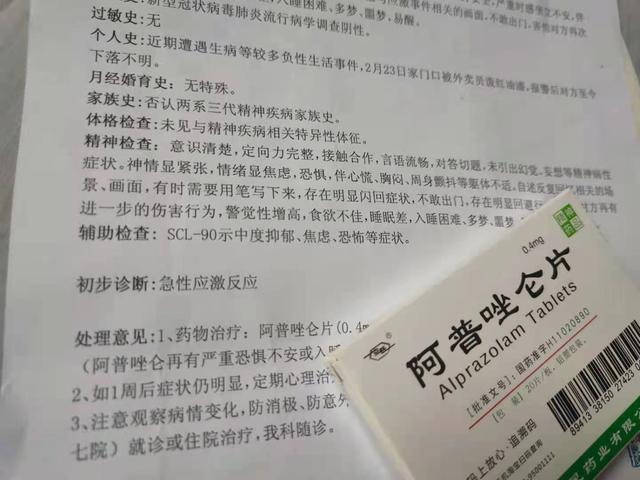 新型冠状病毒肺炎流行病学调查阴性。
入睡困难、多梦、噩梦、易醒。
过敏史：无
个人史：近期遭遇生病等较多负性生活事件，2月23日家门口被外卖员泼红油漆，报警后对方至今
下落不明。
月经婚育史：无特殊。
家族史：否认两系三代精神疾病家族史。
体格检查：未见与精神疾病相关特异性体征。
精神检查：意识清楚，定向力完整，接触合作，言语流畅，对答切题，未引出幻觉、妄想等精神病性
症状。神情显紧张，情绪显焦虑，恐惧，伴心慌、胸闷、周身颤抖等躯体不适，自述反复回忆相关的场
景、画面，有时需要用笔写下来，存在明显闪回症状，不敢出门，存在明显回避行
进一步的伤害行为，警觉性增高，食欲不佳，睡眠差，入睡困难、多梦、噩梦
辅助检查：SCL-90示中度抑郁、焦虑、恐怖等症状。
初步诊断：急性应激反应
处理意见：1、药物治疗：阿普唑仑片(0.4m
（阿普唑仑再有严重恐惧不安或入睡
2、如1周后症状仍明显，定期心理治
3、注意观察病情变化，防消极、防意外
七院）就诊或住院治疗，我科随诊。
0.4mg
阿普唑仑片
Alprazolam Tablets
[批准文号]：国药准字H11020890
[包 装]20片/板，铝塑包装。
89413 38150 27423 0
码上放心·追溯码
95001111
药业有限